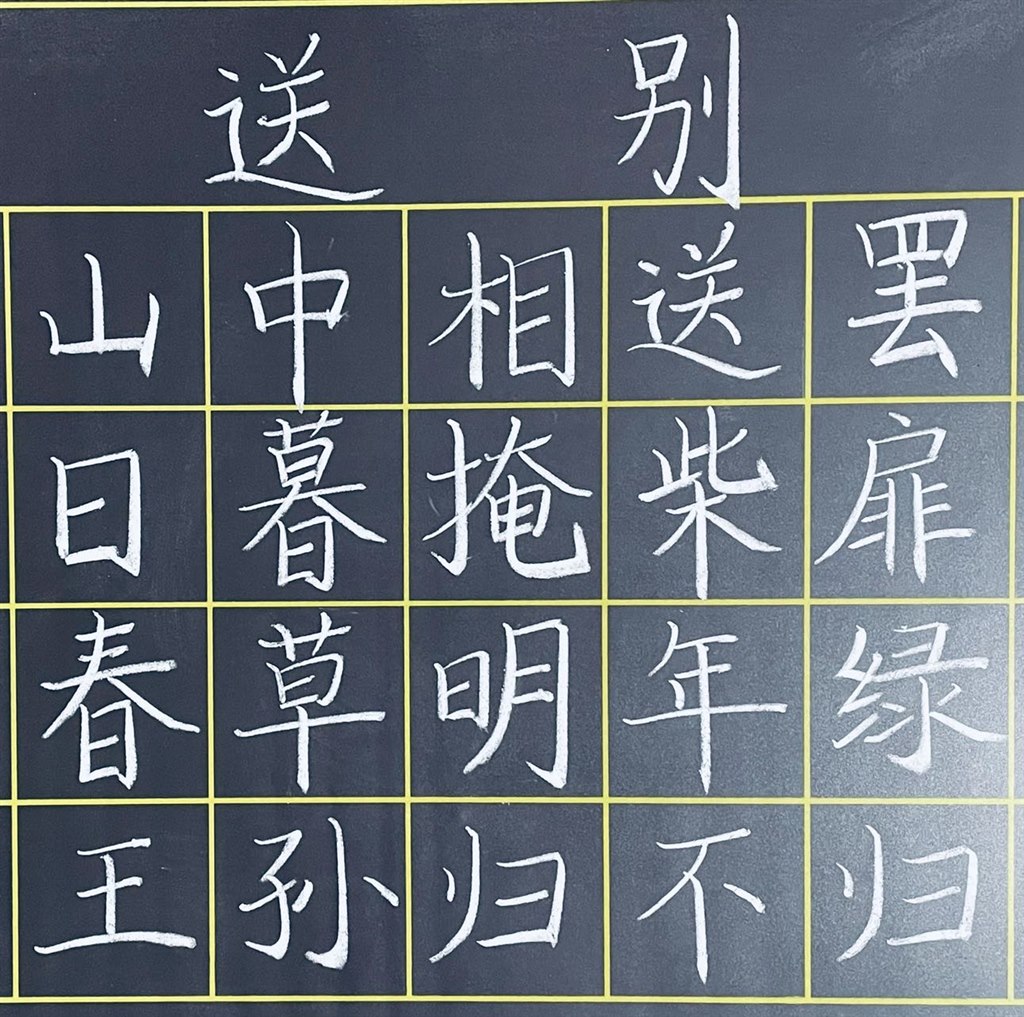 送别
山中相送罢
日暮掩柴扉
春草明年绿
王孙归不归